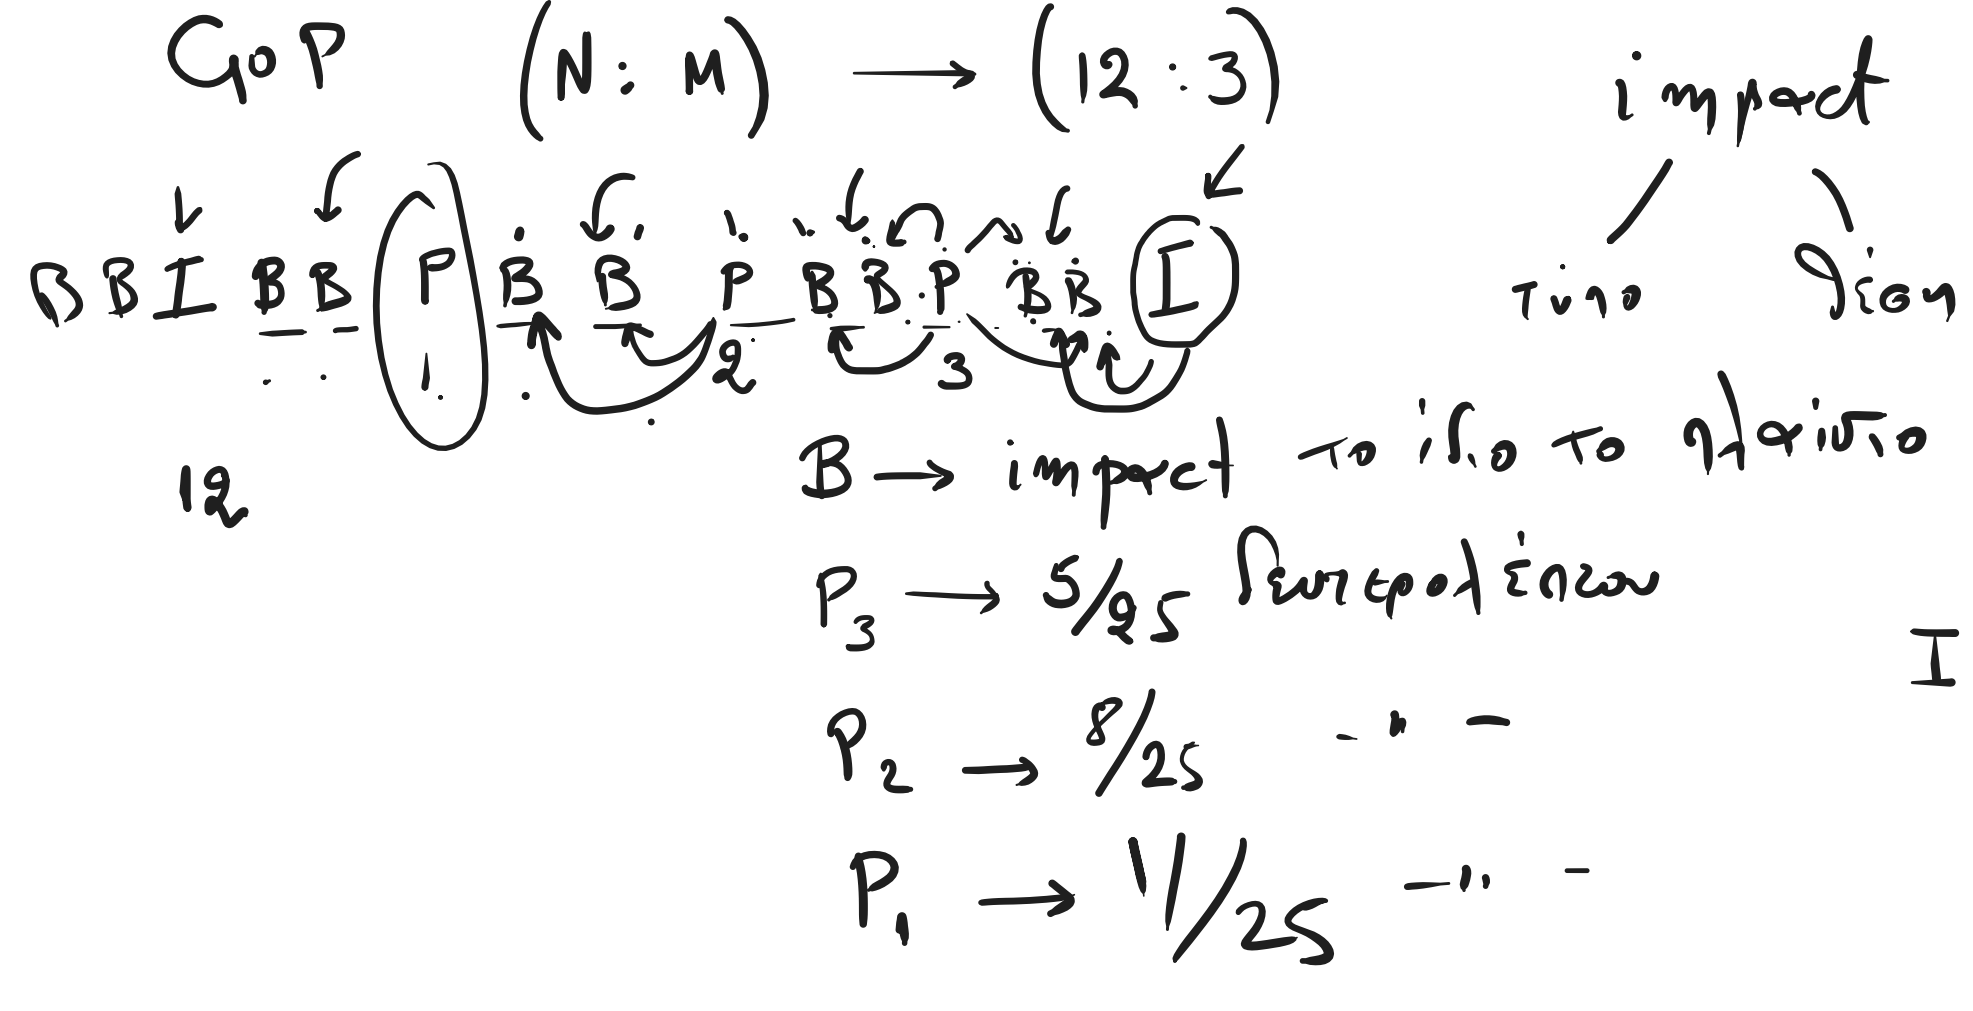 GoP (N : M) → (12 : 3)
impact
τύπο θέση
B B I B B P B B P B B P B B I
1 2 3
12
B → impact το ίδιο το πλαίσιο
P3 → 5/25 δευτερολέπτου
I
P2 → 8/25 - " -
P1 → 11/25 - " -